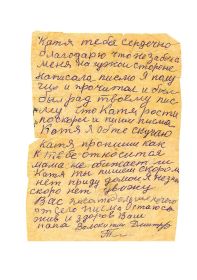 Катя тебя сердечно
благодарю что не забыла
меня на чужой стороне
написала письмо я полу
чил и прочитал и был
был рад твоему пис
му Катя рости
поскорей и пиши письма
Катя я об тебе скучаю
Катя пропиши как
к тебе относится
мама не обижает ли
Катя ты пишеш скоро
нет приду домой я незна
скоро нет увижу
Вас
от сего письма Остаюсь
жив и здоров Ваш
папа Волокитин Дмитрий